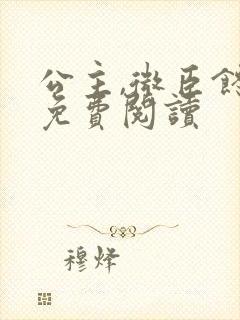 公主,微臣餓
免費閱讀
穆烽